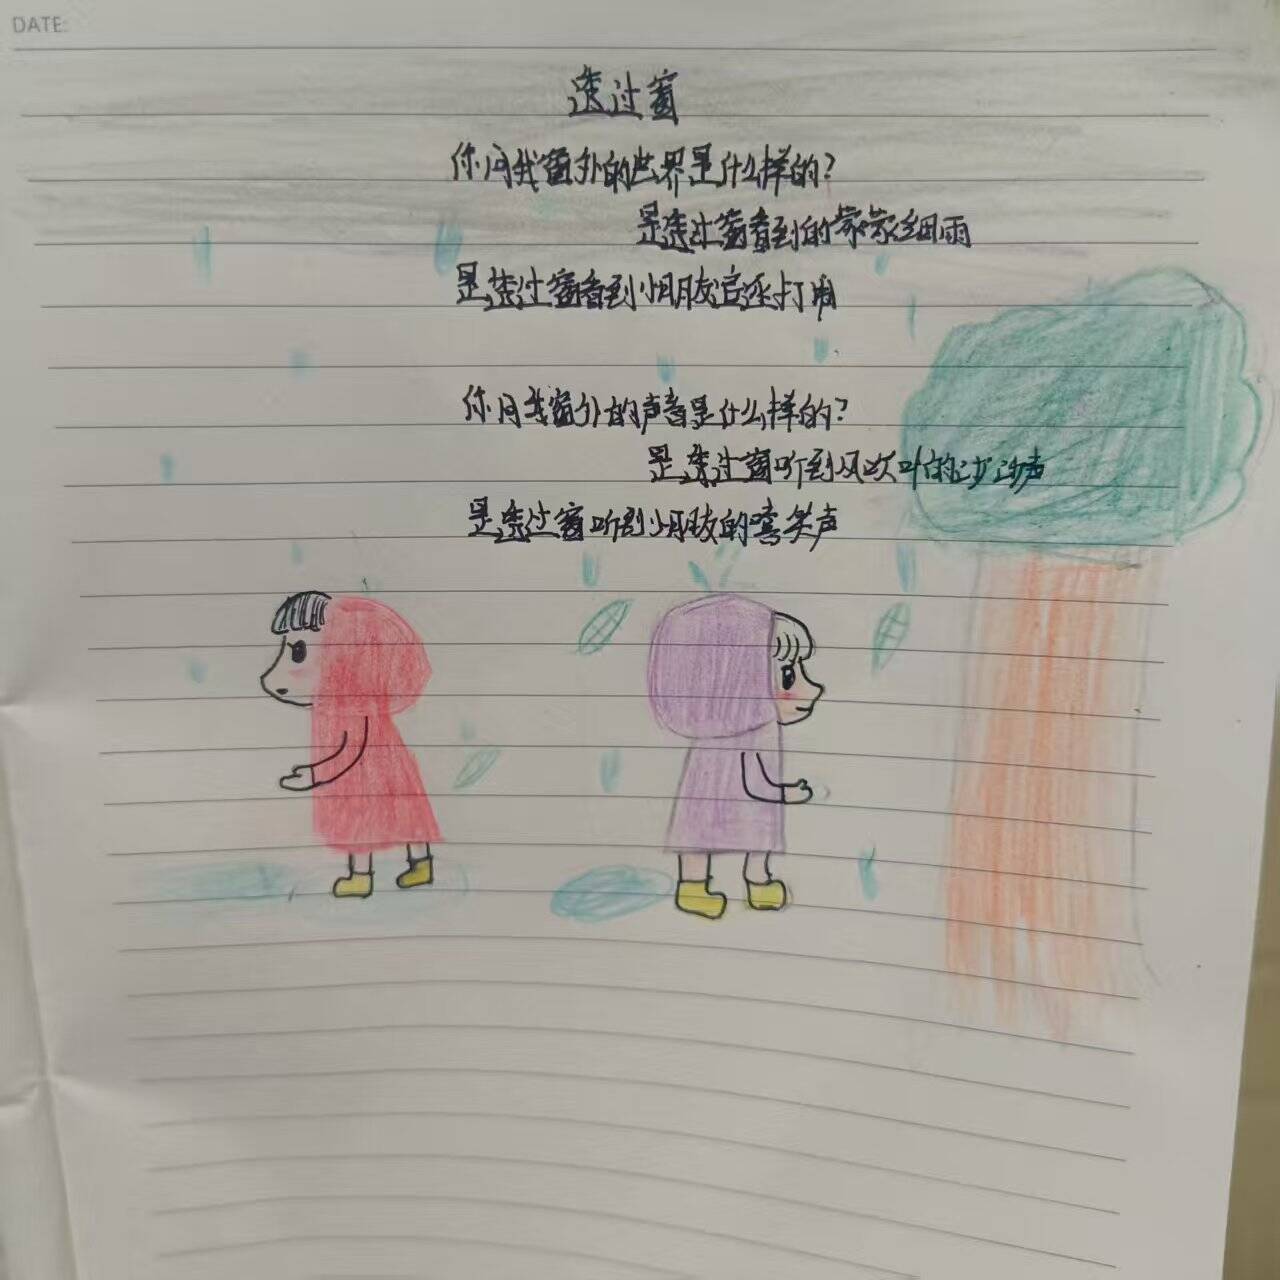 DATE:
透过窗
你问我窗外的世界是什么样的？
是透过窗看到的蒙蒙细雨
是透过窗看到小朋友追逐打闹
你问我窗外的声音是什么样的？
是透过窗听到风吹叶的沙沙声
是透过窗听到小朋友的嘻笑声